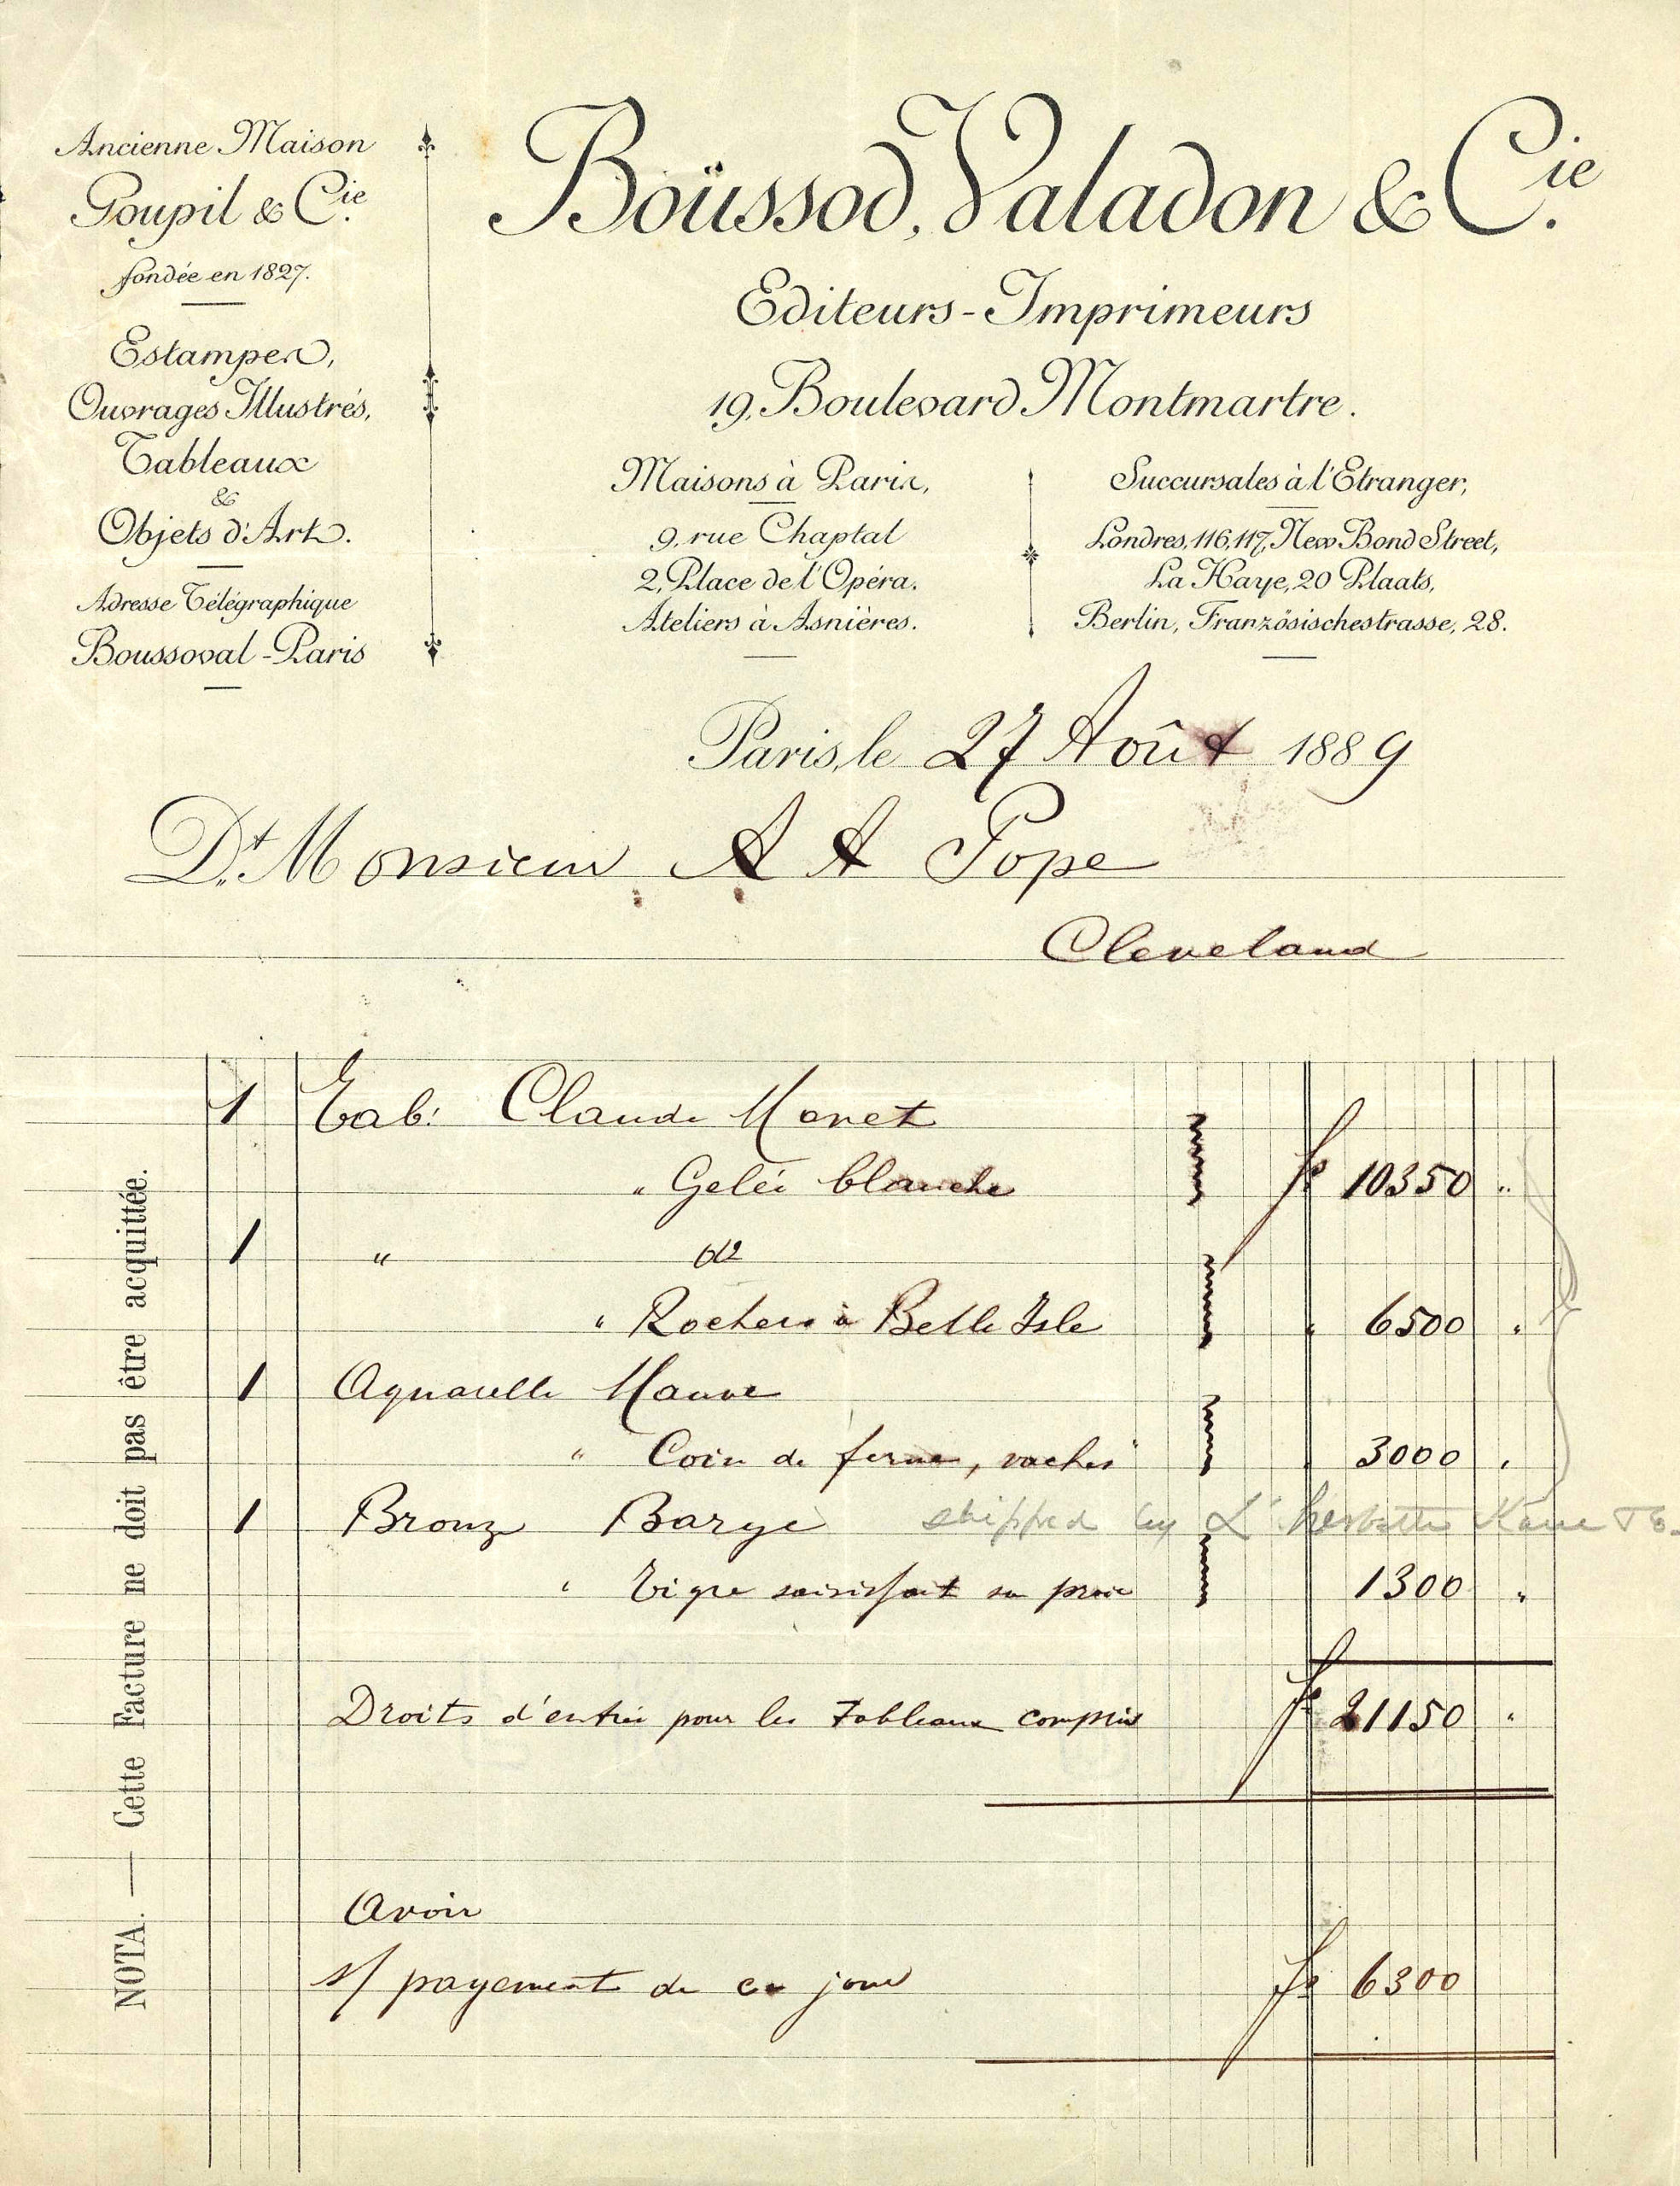 Ancienne Maison
Goupil & Cie.
fondée en 1827.
Estampes,
Ouvrages Illustrés,
Tableaux
&
Objets d'Art.
Adresse Télégraphique
Boussoval-Paris
Boüssod, Valadon & Cie.
Editeurs-Imprimeurs
19, Boulevard Montmartre.
Maisons à Paris,
9, rue Chaptal
2, Place de l'Opéra.
Ateliers à Asnières.
Succursales à l'Etranger,
Londres, 116, 117, New Bond Street,
La Haye, 20 Plaats,
Berlin, Französischestrasse, 28.
Paris, le 27 Août 1889
Dt. Monsieur A A Pope
Cleveland
1 Tab: Claude Monet
" Gelée blanche fs 10350 "
1 " do
" Rochers à Belle Isle " 6500 "
1 Aquarelle Mauve
" Coin de ferme, vaches" 3000 "
1 Bronze Barye shipped by L'herbette Kane &
" Tigre saisissant sa proie 1300 "
Droits d'entrée pour les Tableaux compris fs 21150 "
Avoir
s/ payement de ce jour fs 6300
NOTA. — Cette Facture ne doit pas être acquittée.